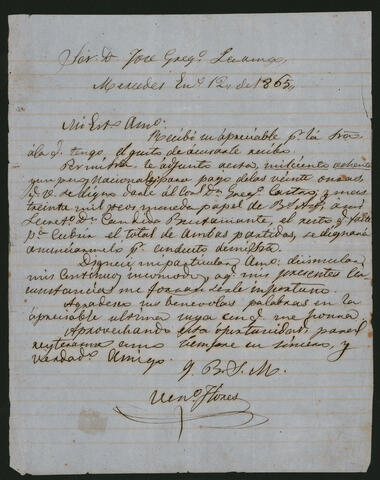 Sor. Dn. José Gregº. Lecama,
Mercedes Enº. 12, de 1865,
Mi Est. Amº.
Recibí su apreciable pr. la
ala q. tengo, el gusto de acusarle recibo
Por mi parte le adjunto acsta, mil ciento ochenta
pesos Nacionales para pago de las veinte onzas,
q. V. se digno darle al Dn. Gregº. Castro, y mas
treinta mil pesos moneda papel de Bs. As.
Dn. Candido Bustamante, el resto q.
pa. cubrir el total de ambas partidas, se dignará
anunciarmelo pr. conducto de mi
Dispence mi particular Amº. disimular
mis continuos incomodos, aq. mis presentes
cunstancias me forzan serle importuno
Agradesco sus benevolas palabras en la
apreciable ultima suya con q. me honra
Aprovechando esta oportunidad, para
reyterarme como siempre su sincero, y
verdadº. Amigo.
Q. B. S. M.
Venº. Flores